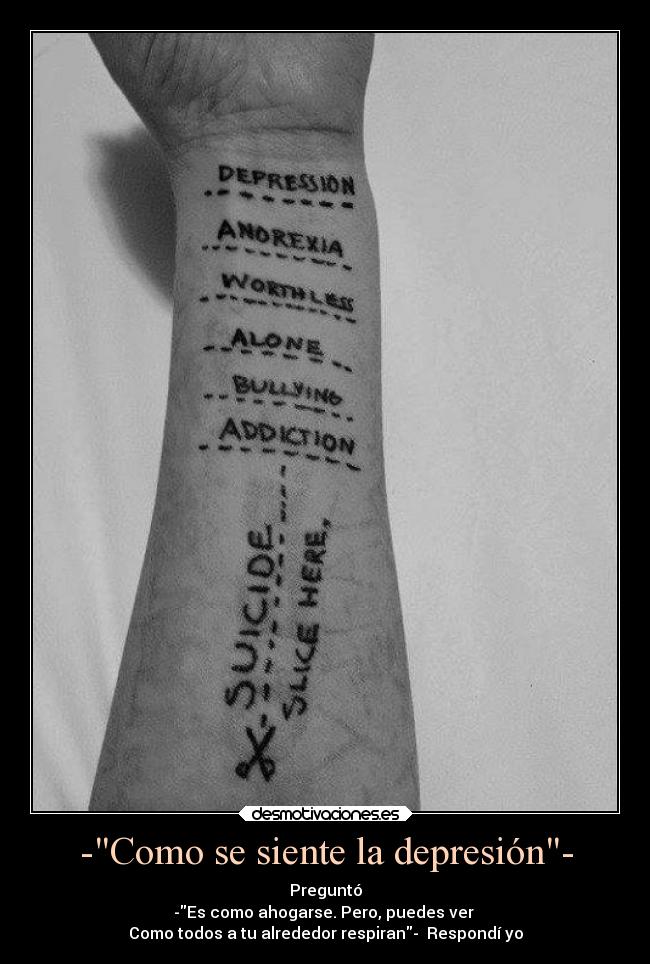 DEPRESSION
ANOREXIA
WORTHLESS
ALONE
BULLYING
ADDICTION
SUICIDE
SLICE HERE,
desmotivaciones.es
-"Como se siente la depresión"-
Preguntó
-"Es como ahogarse. Pero, puedes ver
Como todos a tu alrededor respiran"- Respondí yo